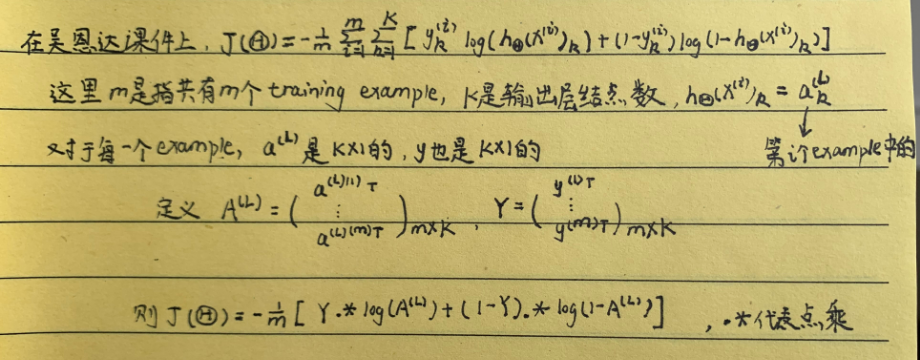 在吴恩达课件上, J(Θ)=-1/m Σ_{i=1}^{m} Σ_{k=1}^{K} [ y_k^{(i)} log(h_Θ(x^{(i)})_k) + (1-y_k^{(i)}) log(1-h_Θ(x^{(i)})_k) ]
这里m是指共有m个training example, K是输出层结点数, h_Θ(x^{(i)})_k = a_k^{(L)}
又对于每一个example, a^{(L)}是K×1的, y也是K×1的 第i个example中的
定义 A^{(L)} = ( a^{(L)(1)T} ⋮ a^{(L)(m)T} )_{m×K} , Y = ( y^{(1)T} ⋮ y^{(m)T} )_{m×K}
则 J(Θ)=-1/m [ Y.* log(A^{(L)}) + (1-Y).* log(1-A^{(L)}) ] , .*代表点乘